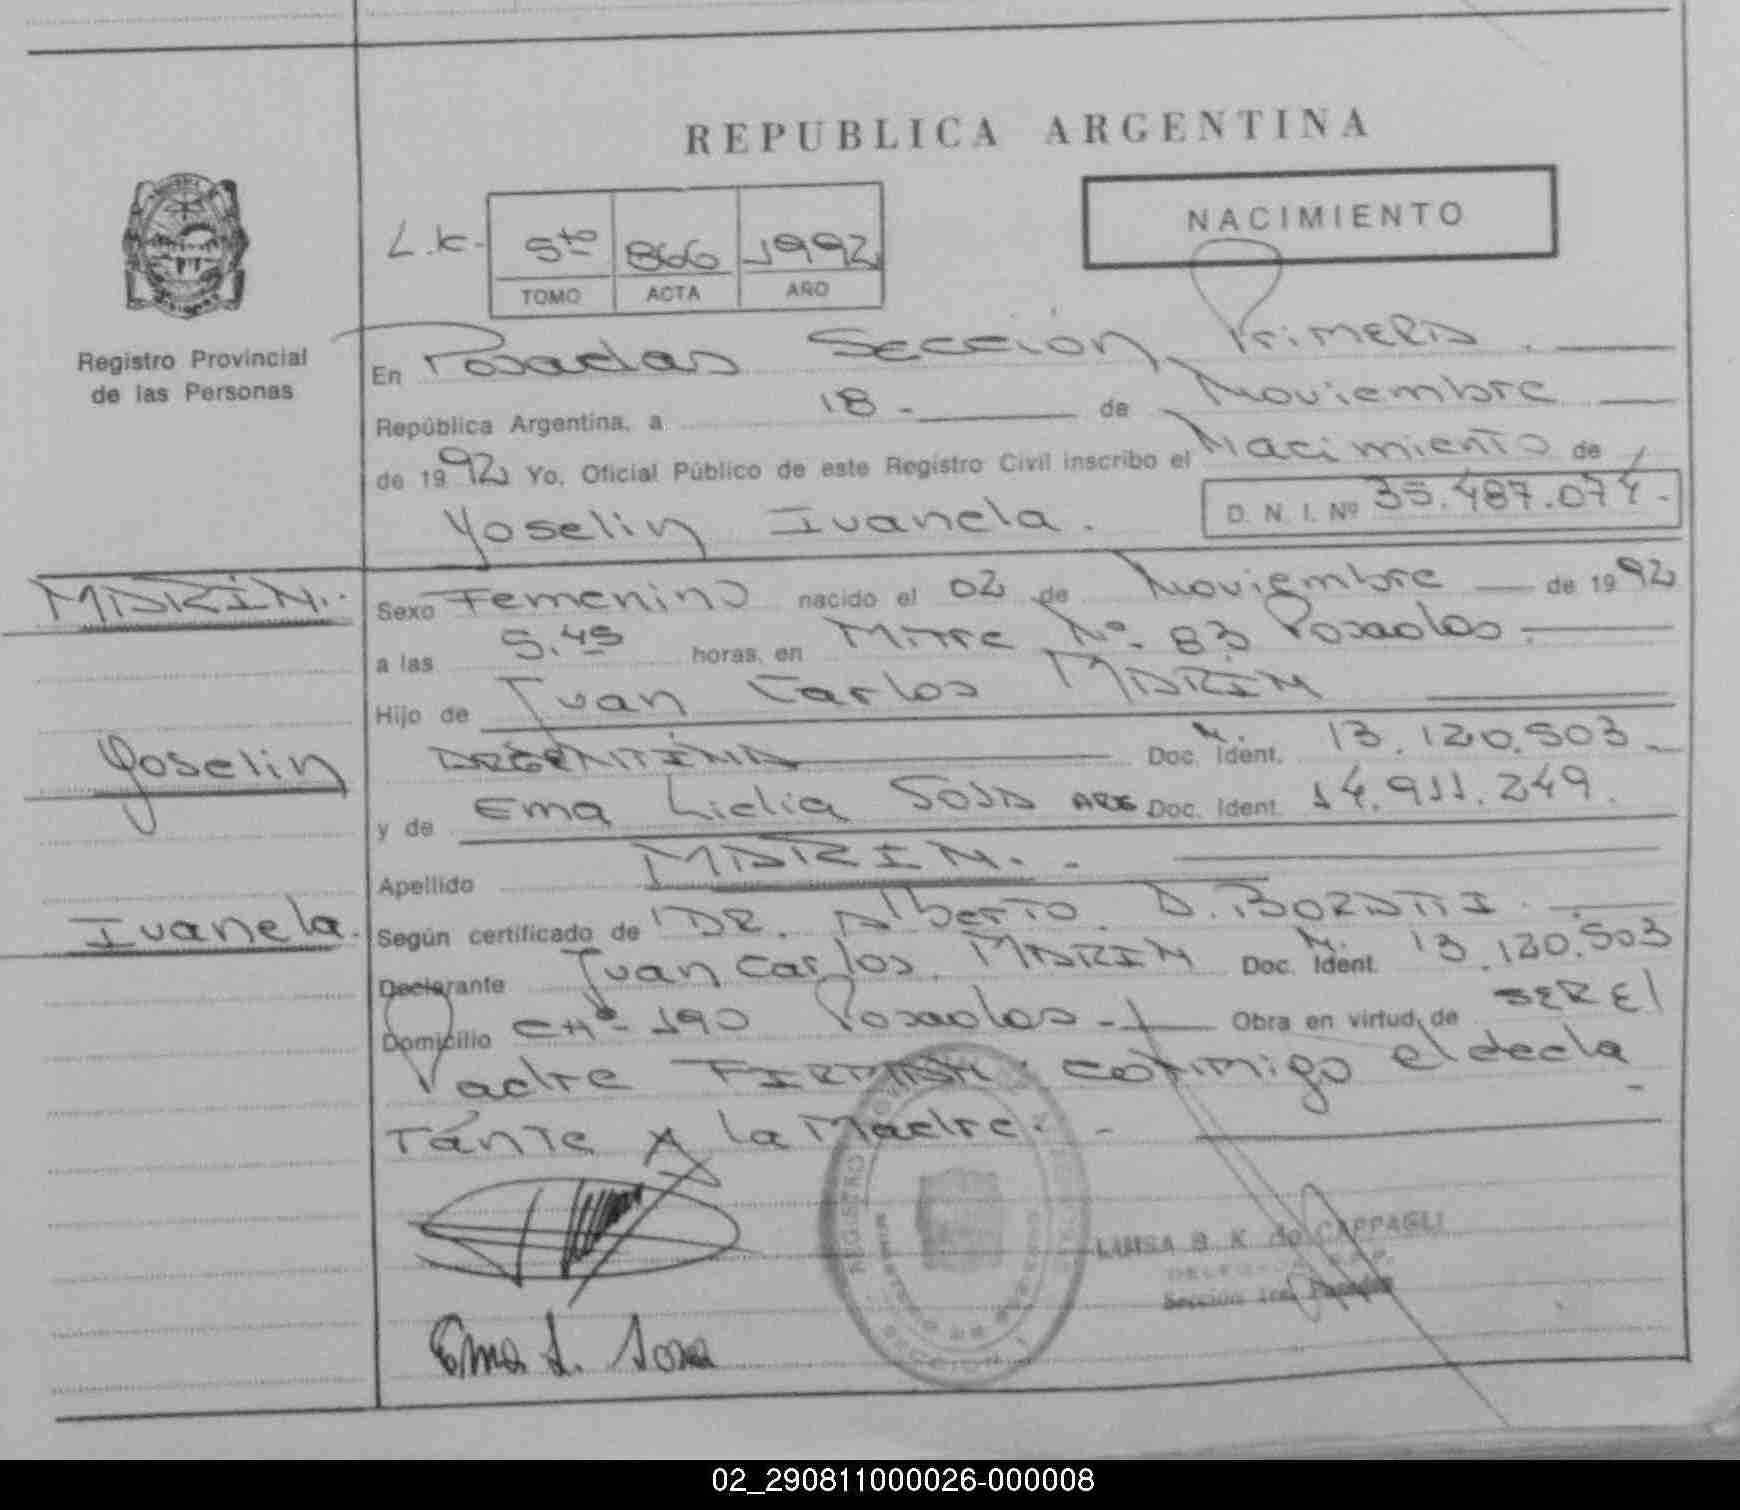 REPUBLICA ARGENTINA
NACIMIENTO
L.K. 5to 866 1992
TOMO ACTA AÑO
Registro Provincial
de las Personas
En Posadas Sección Primera.
República Argentina, a 18 - de Noviembre
de 1992 Yo, Oficial Público de este Registro Civil inscribo el Nacimiento de
Yoselin Ivanela. D. N. I. Nº 35.487.074.-
MARIN.
Sexo Femenino nacido el 02 de Noviembre de 1992
a las 5.45 horas, en Mitre Nº 83 Posadas.
Hijo de Juan Carlos MARIN
Yoselin
ARGENTINA Doc. Ident. 13.120.503-
y de Ema Lidia SOSA ARG Doc. Ident. 14.911.249.
Apellido MARIN.-
Ivanela.
Según certificado de DR. Alberto D. BOZATTI.
Declarante Juan Carlos MARIN Doc. Ident. 13.120.503
Domicilio CHª 190 Posadas- Obra en virtud de SER El
Padre FIRMAN conmigo el decla
ránte y la Madre.-
REGISTRO
SECCION 1
LUISA B. K. de CAPPAGLI
Sección 1ra. Posadas
Ema L. Sosa
02_290811000026-000008